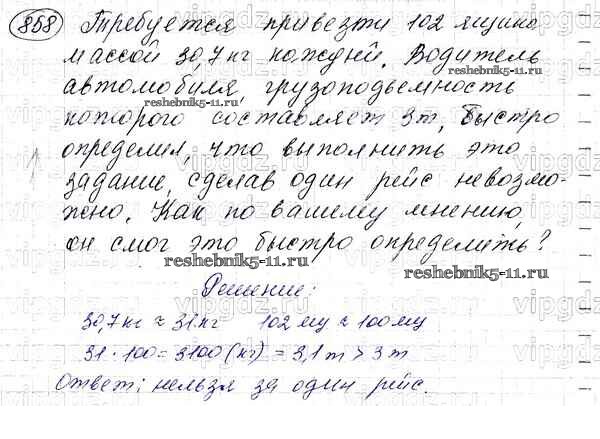 858 Требуется привезти 102 ящика
массой 30,7 кг каждый. Водитель
автомобиля, грузоподъемность
которого составляет 3т, быстро
определил, что выполнить это
задание, сделав один рейс невозмо-
жно. Как по вашему мнению,
он смог это быстро определить?
reshebnik5-11.ru
Решение:
30,7кг ≈ 31кг 102 ≈ 100
31 · 100 = 3100 (кг) = 3,1т > 3т
Ответ: нельзя за один рейс.